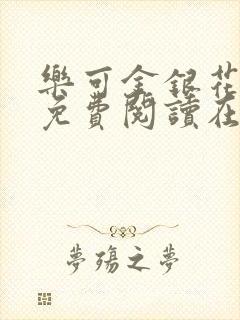 樂可金銀花
免費閱讀在
夢殤之夢